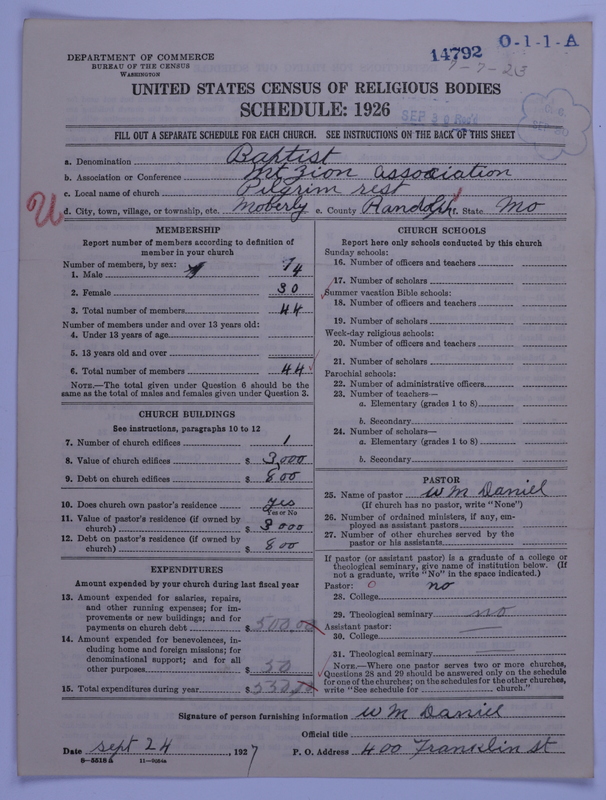 DEPARTMENT OF COMMERCE
BUREAU OF THE CENSUS
WASHINGTON
14792 O-1-1-A
7-7-23
UNITED STATES CENSUS OF RELIGIOUS BODIES
SCHEDULE: 1926
FILL OUT A SEPARATE SCHEDULE FOR EACH CHURCH. SEE INSTRUCTIONS ON THE BACK OF THIS SHEET
a. Denomination Baptist
b. Association or Conference Mt Zion association
c. Local name of church Pilgrim rest
d. City, town, village, or township, etc. Moberly e. County Randolph f. State Mo
MEMBERSHIP
Report number of members according to definition of
member in your church
Number of members, by sex:
1. Male 14
2. Female 30
3. Total number of members 44
Number of members under and over 13 years old:
4. Under 13 years of age
5. 13 years old and over
6. Total number of members 44
NOTE.—The total given under Question 6 should be the
same as the total of males and females given under Question 3.
CHURCH BUILDINGS
See instructions, paragraphs 10 to 12
7. Number of church edifices 1
8. Value of church edifices $ 3,000
9. Debt on church edifices $ 8,00
10. Does church own pastor's residence yes
Yes or No
11. Value of pastor's residence (if owned by
church) $ 3000
12. Debt on pastor's residence (if owned by
church) $ 800
EXPENDITURES
Amount expended by your church during last fiscal year
13. Amount expended for salaries, repairs,
and other running expenses; for im-
provements or new buildings; and for
payments on church debt $ 500.00
14. Amount expended for benevolences, in-
cluding home and foreign missions; for
denominational support; and for all
other purposes $ 50
15. Total expenditures during year $ 550.00
CHURCH SCHOOLS
Report here only schools conducted by this church
Sunday schools:
16. Number of officers and teachers
17. Number of scholars
Summer vacation Bible schools:
18. Number of officers and teachers
19. Number of scholars
Week-day religious schools:
20. Number of officers and teachers
21. Number of scholars
Parochial schools:
22. Number of administrative officers
23. Number of teachers—
a. Elementary (grades 1 to 8)
b. Secondary
24. Number of scholars—
a. Elementary (grades 1 to 8)
b. Secondary
PASTOR
25. Name of pastor W M Daniel
(If church has no pastor, write "None")
26. Number of ordained ministers, if any, em-
ployed as assistant pastors
27. Number of other churches served by the
pastor or his assistants
If pastor (or assistant pastor) is a graduate of a college or
theological seminary, give name of institution below. (If
not a graduate, write "No" in the space indicated.)
Pastor: 0
28. College no
29. Theological seminary no
Assistant pastor:
30. College
31. Theological seminary
NOTE.—Where one pastor serves two or more churches,
Questions 28 and 29 should be answered only on the schedule
for one of the churches; on the schedules for the other churches,
write "See schedule for church."
Signature of person furnishing information W M Daniel
Official title
Date Sept 24, 1927 P. O. Address 400 Franklin st
8-5518a 11-9084a